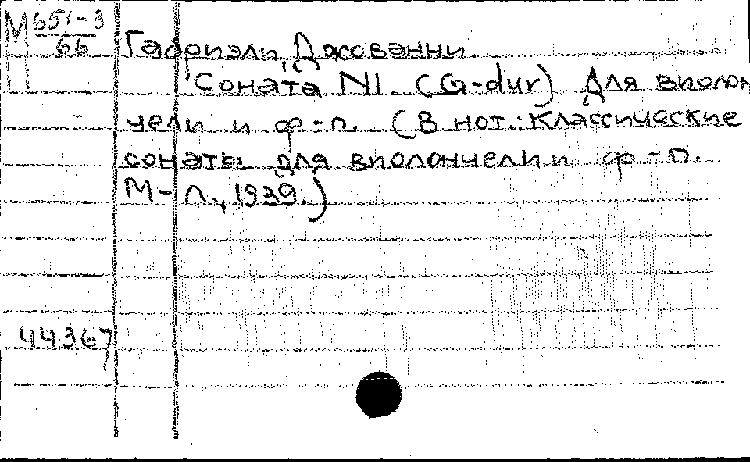 М 651-3
66
Габриэли, Джованни.
Соната N1. (G-dur) Для виолон
чели и ф-п. (В нот.: Классические
сонаты для виолончели и ф-п.
М-Л., 1939.)
44367